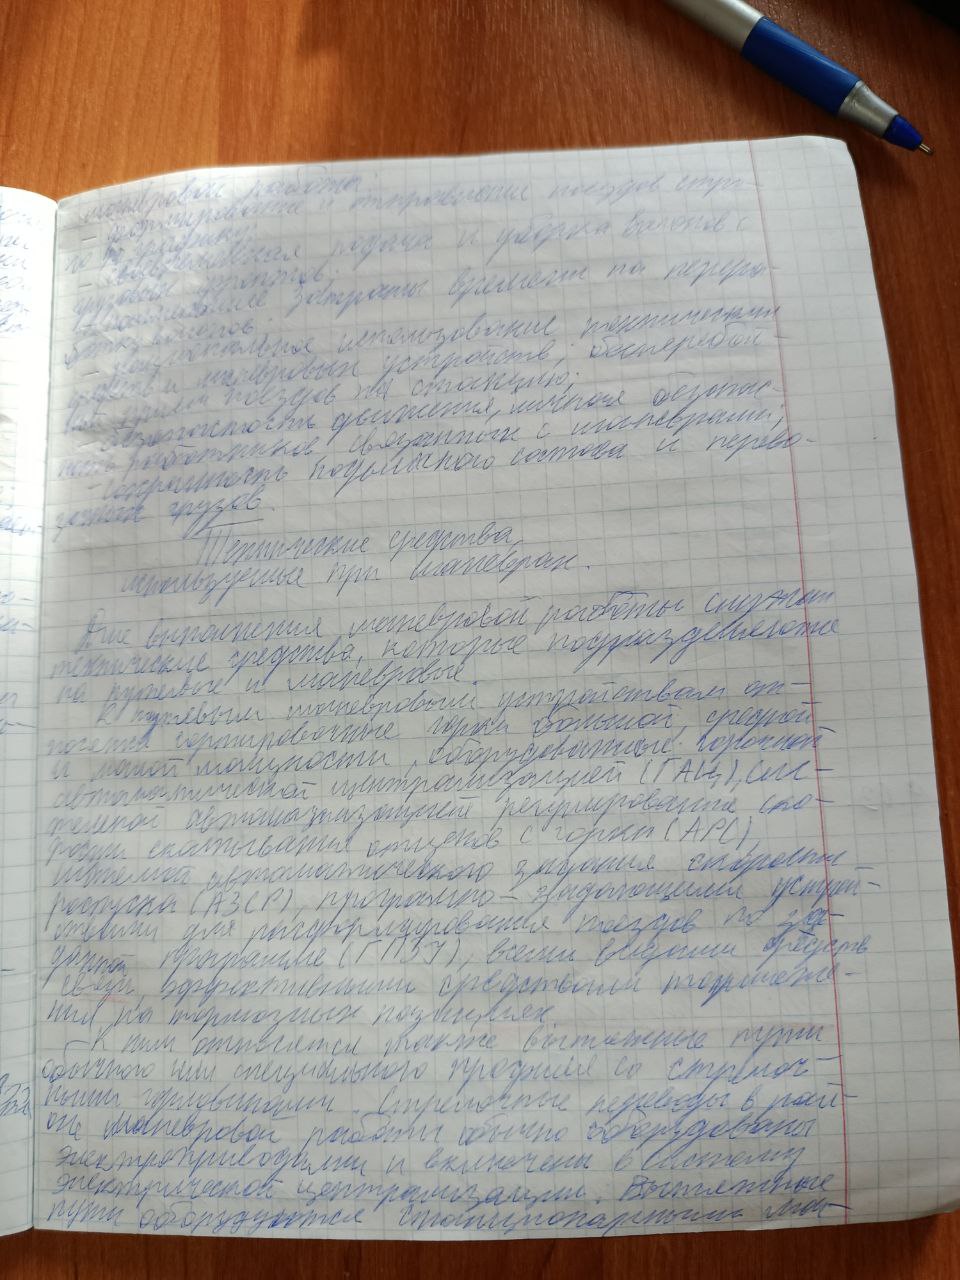 маневровой работы:
- формирование и отправление поездов стро-
го по графику;
- своевременная подача и уборка вагонов с
грузовых фронтов;
- наименьшие затраты времени на перера-
ботку вагонов;
использование технических
средств и маневровых устройств; бесперебой-
ный приём поездов на станцию;
- безопасность движения, личная безопас-
ность работников связанных с маневрами;
- сохранность подвижного состава и перево-
зимых грузов.
Технические средства,
используемые при маневрах.
Для выполнения маневровой работы служат
технические средства, которые подразделяются
на путевые и маневровые.
К путевым маневровым устройствам от-
носятся сортировочные горки большой, средней
и малой мощности, оборудованные горочной
автоматической централизацией (ГАЦ), сис-
темой регулирование ско-
рости скатывания отцепов с горки (АРС),
система автоматического задания скорости
роспуска (АЗСР), программно-задающими устрой-
ствами для расформирования поездов по за-
данной программе (ГПЗУ), всеми видами средств
связи, эффективными средствами торможе-
ния на тормозных позициях.
К ним относятся также вытяжные пути
обычного или специального профиля со стрелоч-
ными горловинами. Стрелочные переводы в рай-
оне маневровой работы обычно оборудованы
электроприводами и включены в систему
электрической централизации. Вытяжные
пути оборудуются стационарными ма-